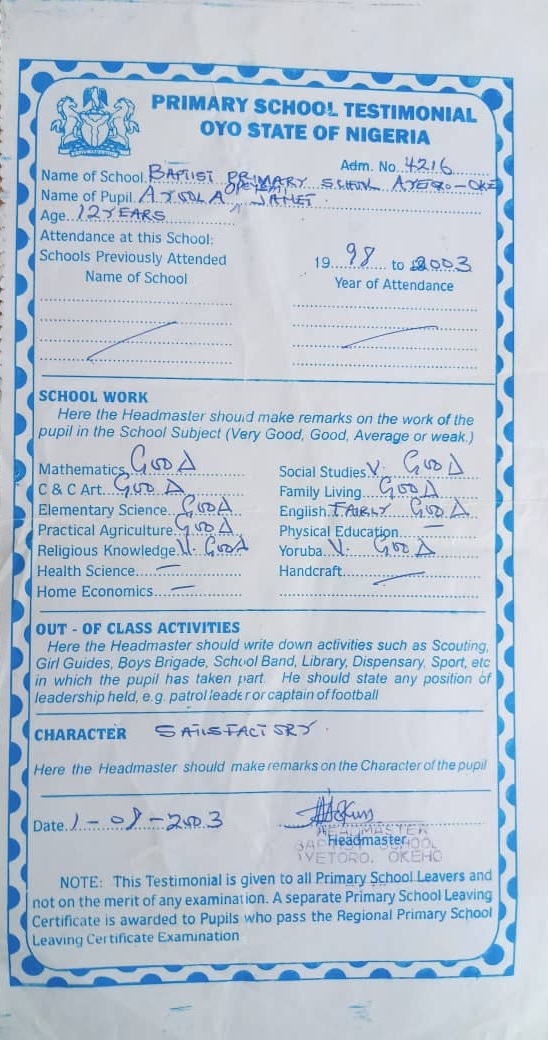 PRIMARY SCHOOL TESTIMONIAL
OYO STATE OF NIGERIA
Adm. No. 4216
Name of School BAPTIST PRIMARY SCHOOL
Name of Pupil AYOOLA JANET
Age 12 YEARS
Attendance at this School:
Schools Previously Attended 19 98 to 2003
Name of School Year of Attendance
SCHOOL WORK
Here the Headmaster should make remarks on the work of the
pupil in the School Subject (Very Good, Good, Average or weak.)
Mathematics GOOD Social Studies V. GOOD
C & C Art GOOD Family Living GOOD
Elementary Science GOOD English FAIRLY GOOD
Practical Agriculture GOOD Physical Education —
Religious Knowledge V. GOOD Yoruba V. GOOD
Health Science — Handcraft
Home Economics —
OUT - OF CLASS ACTIVITIES
Here the Headmaster should write down activities such as Scouting,
Girl Guides, Boys Brigade, School Band, Library, Dispensary, Sport, etc
in which the pupil has taken part. He should state any position of
leadership held, e.g. patrol leader or captain of football
CHARACTER SATISFACTORY.
Here the Headmaster should make remarks on the Character of the pupil
Date 1-08-2003
HEADMASTER
Headmaster
BAPTIST SCHOOL
IYETORO, OKEHO
NOTE: This Testimonial is given to all Primary School Leavers and
not on the merit of any examination. A separate Primary School Leaving
Certificate is awarded to Pupils who pass the Regional Primary School
Leaving Certificate Examination